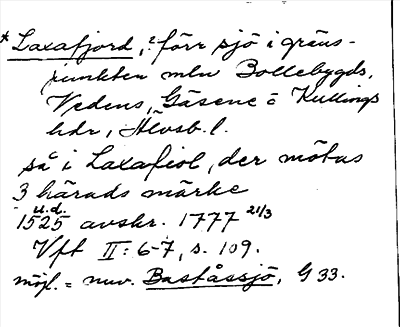 * Laxafjord, ? förr sjö i gräns-
punkten mln Bollebygds,
Vedens, Gäsene o Kullings
hdr, Älvsb. l.
så i Laxafiol, der mötas
3 härads märke
u.d.
1525 avskr. 1777 21/3
Vft II: 6-7, s. 109.
möjl. = nuv. Baståssjö, G 33.